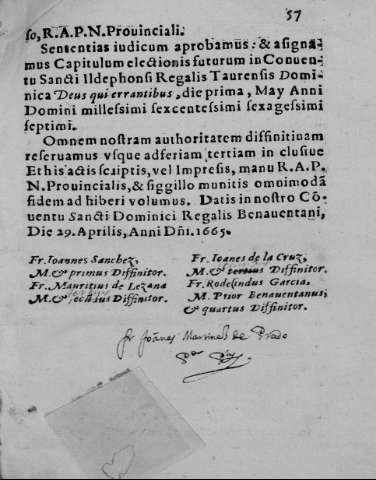 57
so, R.A.P.N. Prouinciali.
Sententias iudicum aprobamus: & asigna-
mus Capitulum electionis futurum in Conuen-
tu Sancti Ildephonsi Regalis Taurensis Domi-
nica Deus qui errantibus, die prima, May Anni
Domini millessimi sexcentessimi sexagessimi
septimi.
Omnem nostram authoritatem diffinitiuam
reseruamus vsque adferiam tertiam in clusiue
Et his actis scriptis, vel Impresis, manu R.A.P.
N. Prouincialis, & siggillo munitis omnimodã
fidem ad hiberi volumus. Datis in nostro Cõ-
uentu Sancti Dominici Regalis Benauentani,
Die 29. Aprilis, Anni Dñi. 1665.
Fr. Ioannes Sanchez,
M. & primus Diffinitor.
Fr. Mauritius de Lezana
M. & secũdus Diffinitor.
Fr. Ioanes de la Cruz,
M. & tertius Diffinitor.
Fr. Rodelindus Garcia,
M. Prior Benauentanus,
& quartus Diffinitor.
fr Joães Martinez de Prado